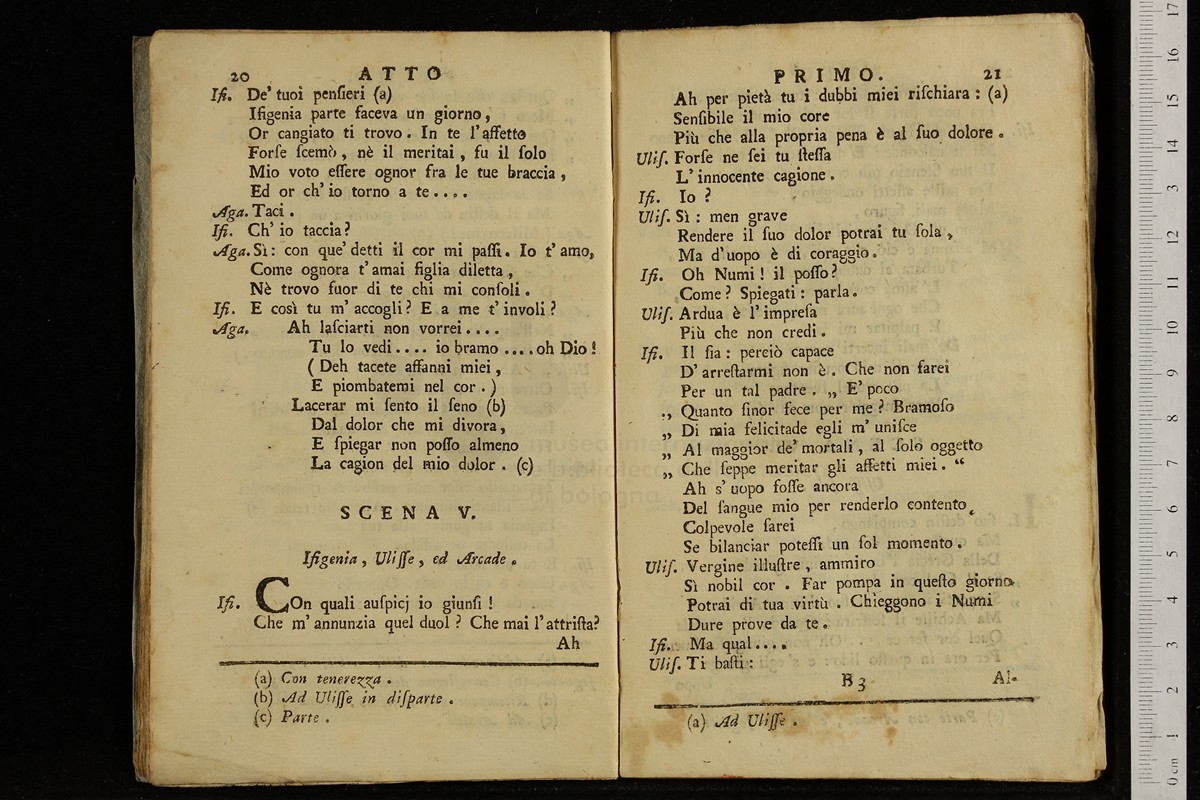 20 ATTO
Ifi. De' tuoi penſieri (a)
Ifigenia parte faceva un giorno,
Or cangiato ti trovo. In te l'affetto
Forſe ſcemò, nè il meritai, fu il ſolo
Mio voto eſſere ognor fra le tue braccia,
Ed or ch' io torno a te....
Aga. Taci.
Ifi. Ch' io taccia?
Aga. Sì: con que' detti il cor mi paſſi. Io t' amo,
Come ognora t' amai figlia diletta,
Nè trovo fuor di te chi mi conſoli.
Ifi. E così tu m' accogli? E a me t' involi?
Aga. Ah laſciarti non vorrei....
Tu lo vedi.... io bramo....oh Dio!
(Deh tacete affanni miei,
E piombatemi nel cor.)
Lacerar mi ſento il ſeno (b)
Dal dolor che mi divora,
E ſpiegar non poſſo almeno
La cagion del mio dolor. (c)
SCENA V.
Ifigenia, Uliſſe, ed Arcade.
Ifi. COn quali auſpicj io giunſi!
Che m' annunzia quel duol? Che mai l' attriſta?
Ah
(a) Con tenerezza.
(b) Ad Uliſſe in diſparte.
(c) Parte.
PRIMO. 21
Ah per pietà tu i dubbi miei riſchiara: (a)
Senſibile il mio core
Più che alla propria pena è al ſuo dolore.
Uliſ. Forſe ne ſei tu ſteſſa
L' innocente cagione.
Ifi. Io?
Uliſ. Sì: men grave
Rendere il ſuo dolor potrai tu ſola,
Ma d' uopo è di coraggio.
Ifi. Oh Numi! il poſſo?
Come? Spiegati: parla.
Uliſ. Ardua è l' impreſa
Più che non credi.
Ifi. Il ſia: perciò capace
D' arreſtarmi non è. Che non farei
Per un tal padre. „ E' poco
„ Quanto ſinor fece per me? Bramoſo
„ Di mia felicitade egli m' uniſce
„ Al maggior de' mortali, al ſolo oggetto
„ Che ſeppe meritar gli affetti miei. “
Ah s' uopo foſſe ancora
Del ſangue mio per renderlo contento,
Colpevole ſarei
Se bilanciar poteſſi un ſol momento.
Uliſ. Vergine illuſtre, ammiro
Sì nobil cor. Far pompa in queſto giorno
Potrai di tua virtù. Chieggono i Numi
Dure prove da te.
Ifi. Ma qual....
Uliſ. Ti baſti:
B 3 Al-
(a) Ad Uliſſe.